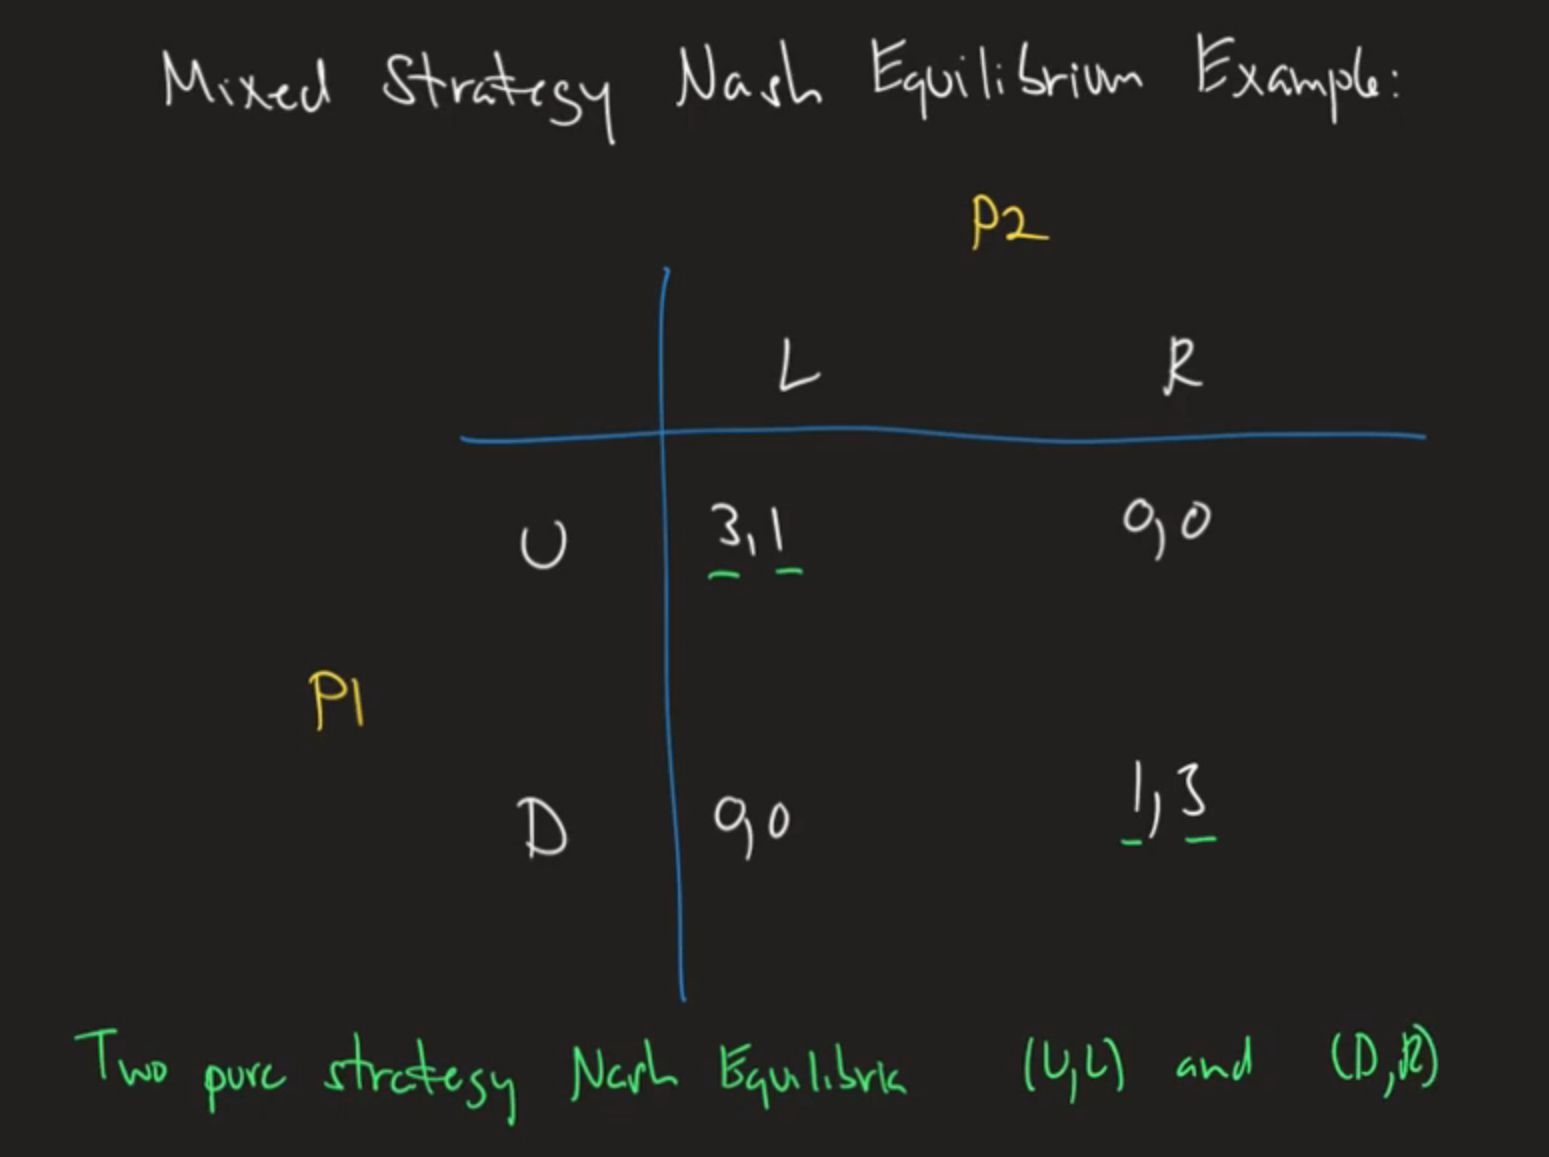 Mixed Strategy Nash Equilibrium Example:
P2
L R
U 3,1 0,0
P1
D 0,0 1,3
Two pure strategy Nash Equilibria (U,L) and (D,R)